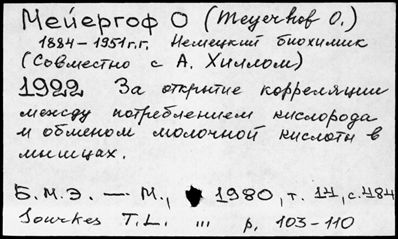 Мейергоф О (Meyerhof O.)
1884-1951г.г. Немецкий биохимик
(Совместно с А. Хиллом)
1922 За открытие корреляции
между потреблением кислорода
и обменом молочной кислоты в
мышцах.
Б.М.Э. — М., 1980, т. 14, с.484
Sourkes T.L. "' p. 103-110